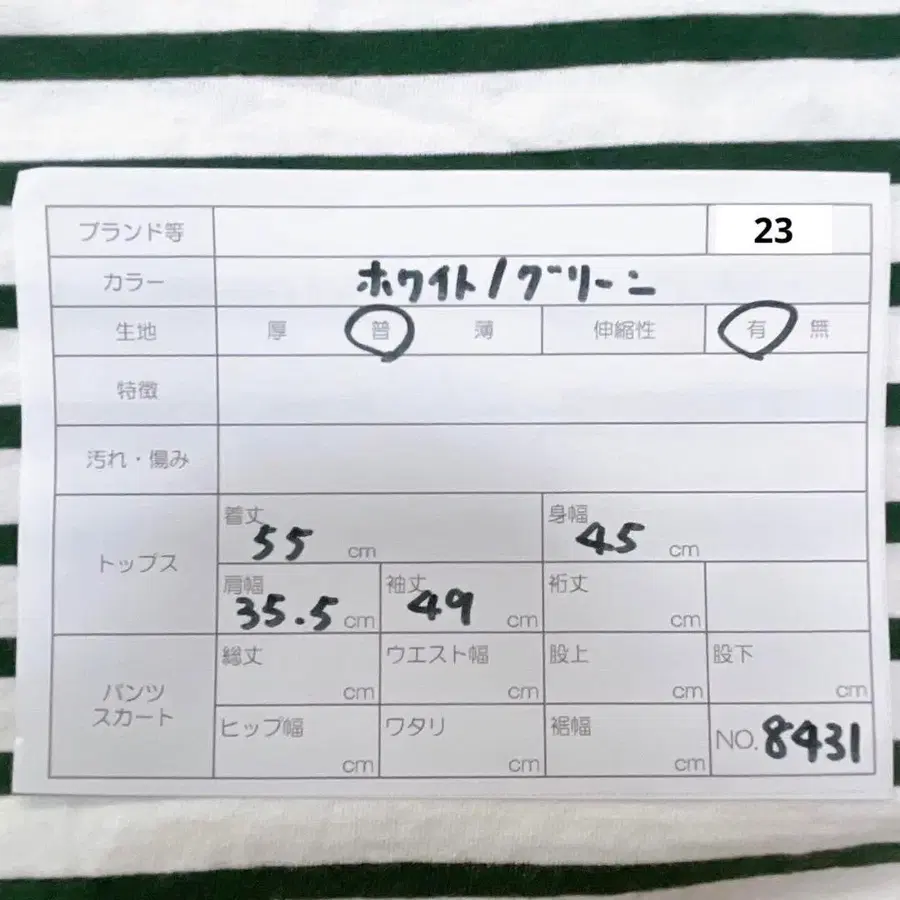 ブランド等 23
カラー ホワイト/グリーン
生地 厚 普 薄 伸縮性 有 無
特徴
汚れ・傷み
トップス
着丈 55 cm 身幅 45 cm
肩幅 35.5 cm 袖丈 49 cm 裄丈 cm
パンツ
スカート
総丈 cm ウエスト幅 cm 股上 cm 股下 cm
ヒップ幅 cm ワタリ cm 裾幅 cm NO. 8431